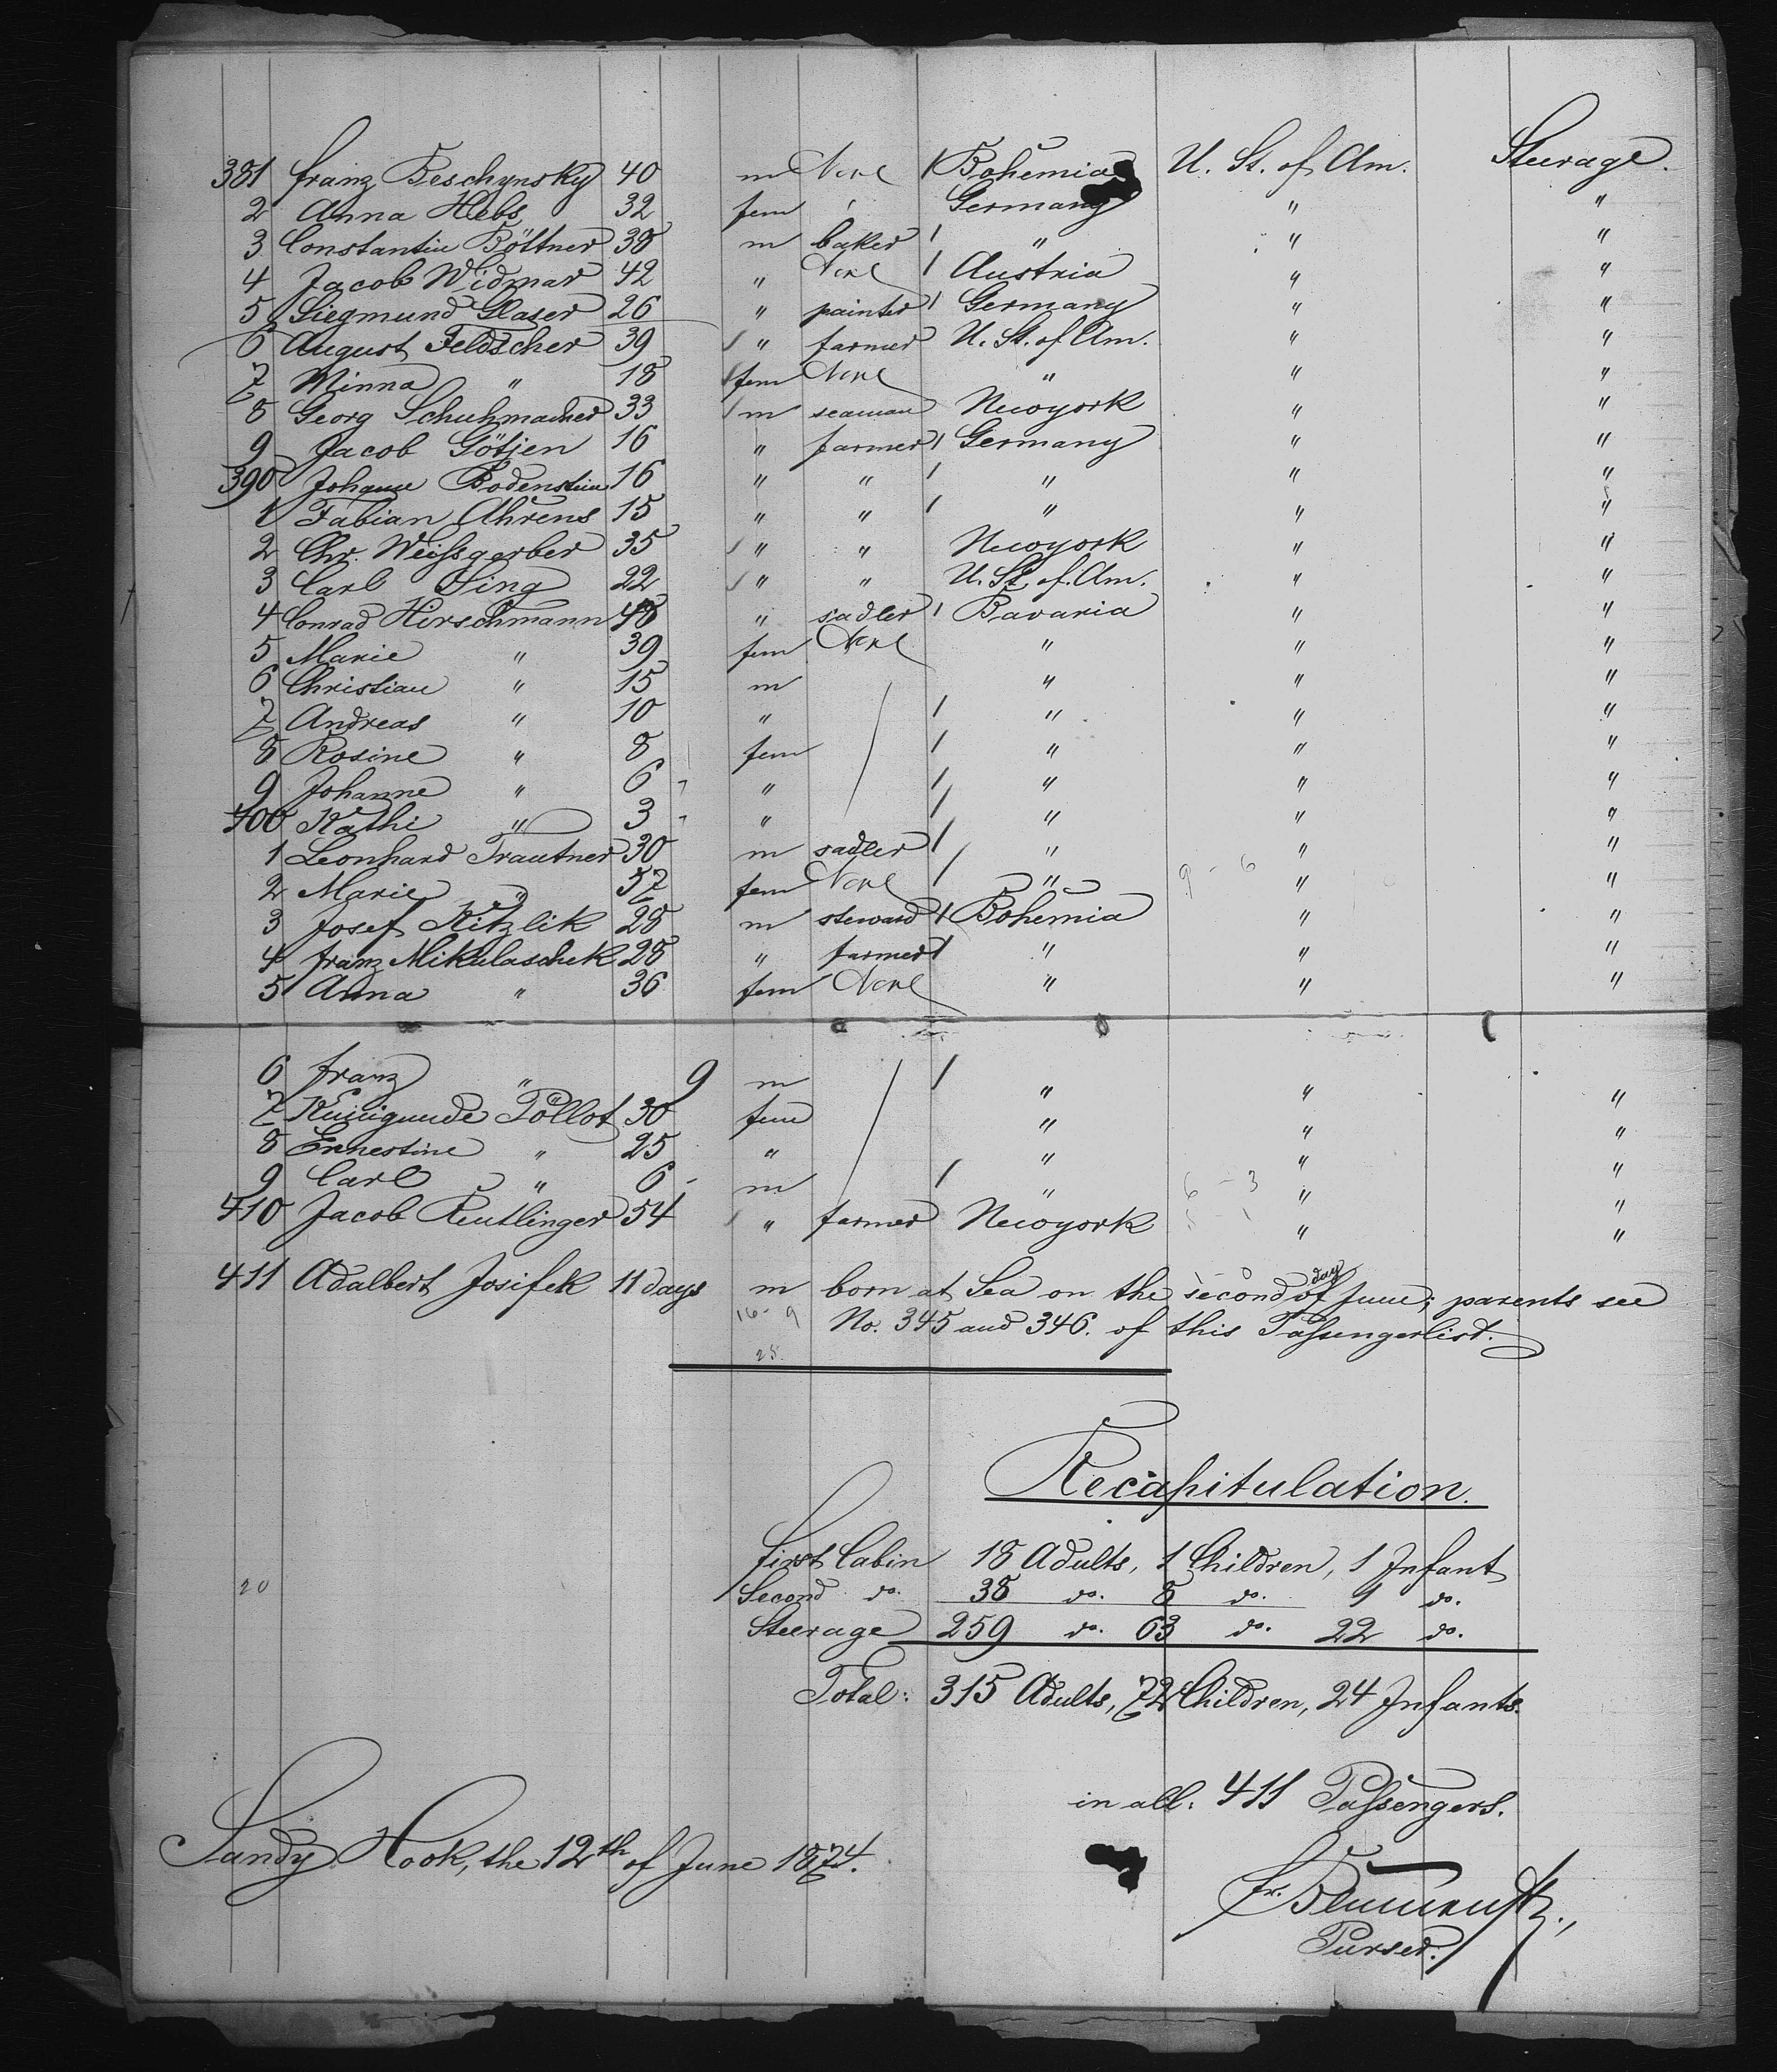 381 Franz Beschynsky 40 m None 1 Bohemia U. St. of Am. Steerage.
2 Anna Hebs 32 fem Germany " "
3 Constantin Böttner 38 m baker 1 " " "
4 Jacob Widmar 42 " None 1 Austria " "
5 Siegmund Glaser 26 " painter 1 Germany " "
6 August Feldscher 39 " farmer U. St. of Am. " "
7 Minna " 18 fem None " " "
8 Georg Schuhmacher 33 m seaman Newyork " "
9 Jacob Götjen 16 " farmer 1 Germany " "
390 Johann Bodenstein 16 " " 1 " " "
1 Fabian Ahrens 15 " " 1 " " "
2 Chr. Weißgerber 35 " " Newyork " "
3 Carl Sing 22 " " U. St. of Am. " "
4 Conrad Hirschmann 48 " sadler 1 Bavaria " "
5 Marie " 39 fem None " " "
6 Christian " 15 m " " "
7 Andreas " 10 " 1 " " "
8 Rosine " 8 fem 1 " " "
9 Johanne " 6 " 1 " " "
400 Käthi " 3 " 1 " " "
1 Leonhard Trautner 30 m sadler 1 " " "
2 Marie " 57 fem None 1 " 9 - 6 " "
3 Josef Kitzlik 28 m steward 1 Bohemia " "
4 Franz Mikulaschek 28 " farmer 1 " " "
5 Anna " 36 fem None " " "
6 Franz " 9 m 1 " " "
7 Kunigunde Pöllot 30 fem " " "
8 Ernestine " 25 " " " "
9 Carl " 6 m 1 " 6 - 3 " "
410 Jacob Reutlinger 54 " farmer Newyork " "
411 Adalbert Josifek 11 days m born at Sea on the second day of June; parents see
16 - 9 No. 345 and 346. of this Paßengerlist.
25.
Recapitulation.
First Cabin 18 Adults, 1 Children, 1 Infant
20 Second do. 38 do. 8 do. 1 do.
Steerage 259 do. 63 do. 22 do.
Total: 315 Adults, 72 Children, 24 Infants.
in all: 411 Paßengers.
Sandy Hook, the 12th of June 1874.
Fr.
Purser.